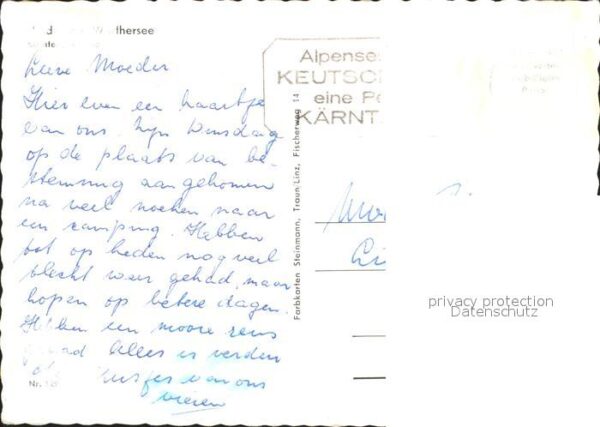 Wörthersee
Lieve Moeder
Hier even een kaartje
van ons. Zijn Dinsdag
op de plaats van be-
stemming aangekomen
na veel zoeken naar
een camping. Hebben
tot op heden nog veel
slecht weer gehad, maar
hopen op betere dagen.
Hebben een mooie reis
gehad Alles is verder
kusjes van ons
vieren
Nr.
Farbkarten Steinmann, Traun-Linz, Fischerweg 14
Alpensee
KEUTSC
eine Pe
KÄRNT
privacy protection
Datenschutz